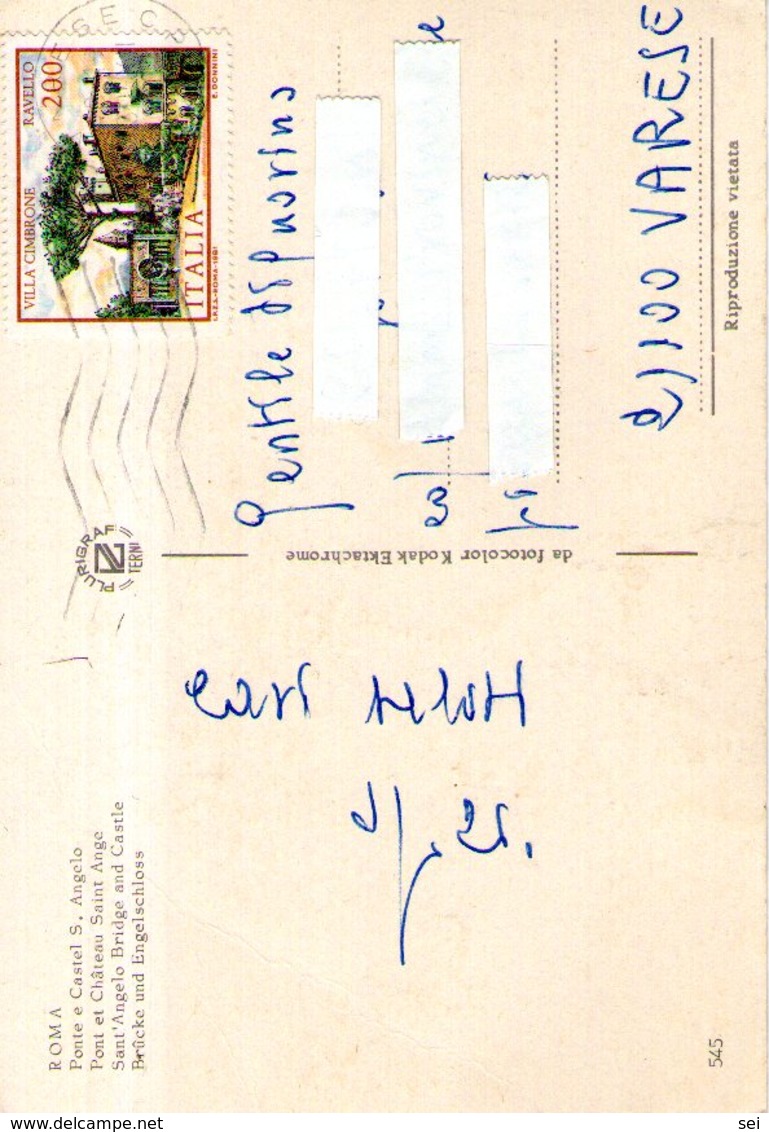 ROMA
Ponte e Castel S. Angelo
Pont et Château Saint Ange
Sant'Angelo Bridge and Castle
Brücke und Engelschloss
Cari saluti
545
PLURIGRAF
TERNI
da fotocolor Kodak Ektachrome
VILLA CIMBRONE RAVELLO
200
ITALIA
I.P.Z.S.-ROMA-1981
E. DONNINI
Gentile
21100 VARESE
Riproduzione vietata
sei